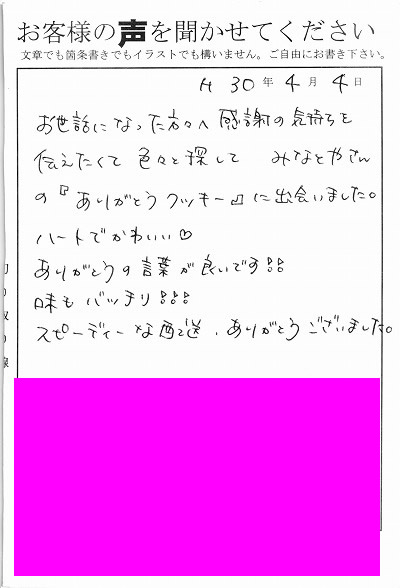 お客様の声を聞かせてください
文章でも箇条書きでもイラストでも構いません。ご自由にお書き下さい。
H 30年 4月 4日
お世話になった方々へ 感謝の気持ちを
伝えたくて 色々と探して みなとやさん
の『ありがとうクッキー』に出会いました。
ハートでかわいい♡
ありがとうの言葉が良いです!!
味もバッチリ!!!
スピーディーな配送、ありがとうございました。